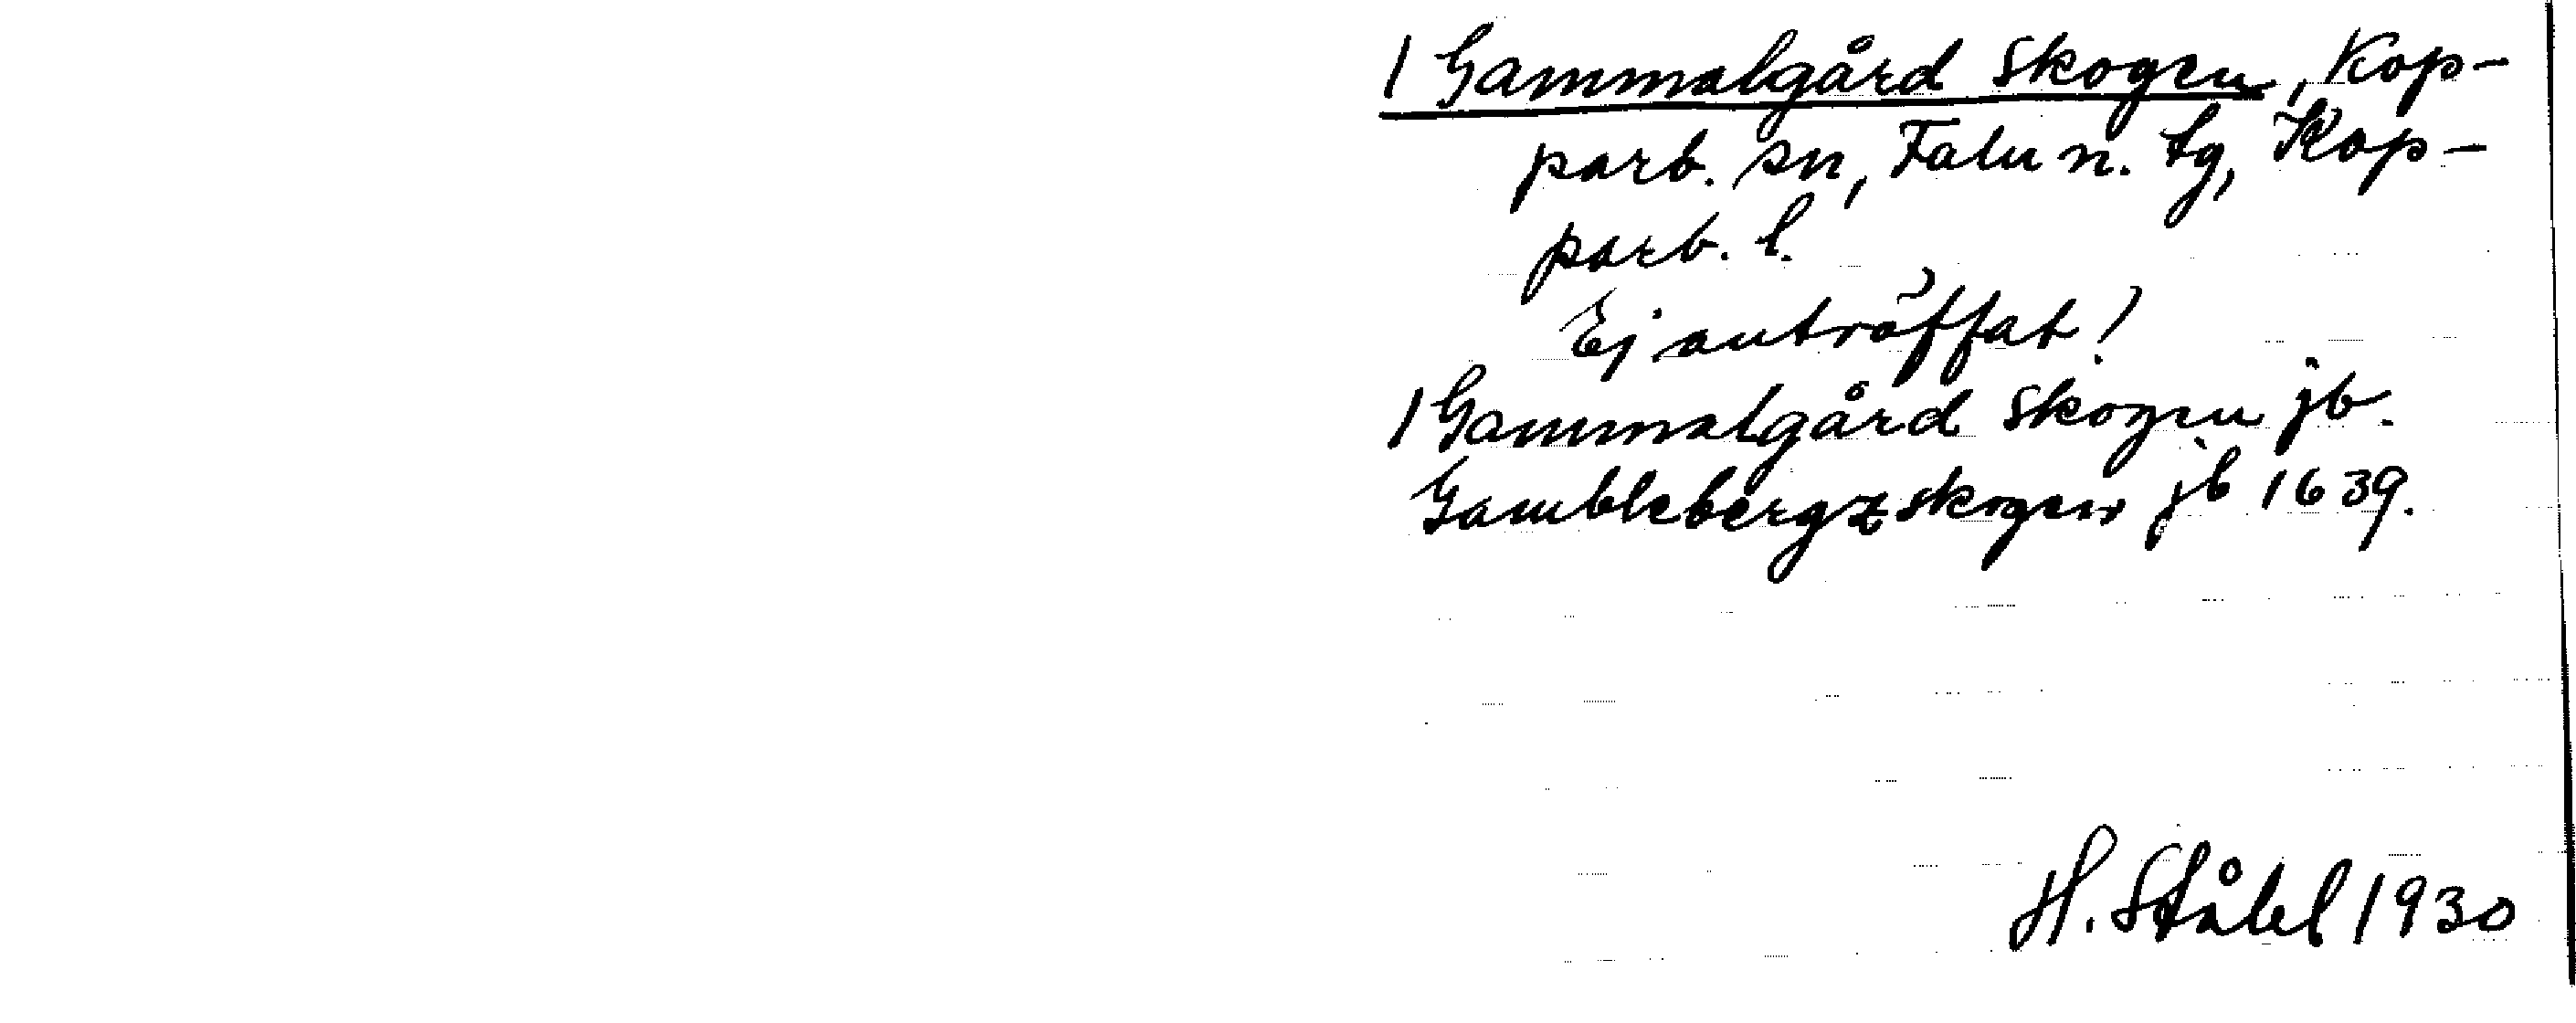 1 Gammalgård skogen, Kop-
parb. sn, Falu n. tg, Kop-
parb. l.
Ej anträffat!
1 Gammalgård skogen jb.
Gamblebergzskogen jb 1639.
H. Ståhl 1930